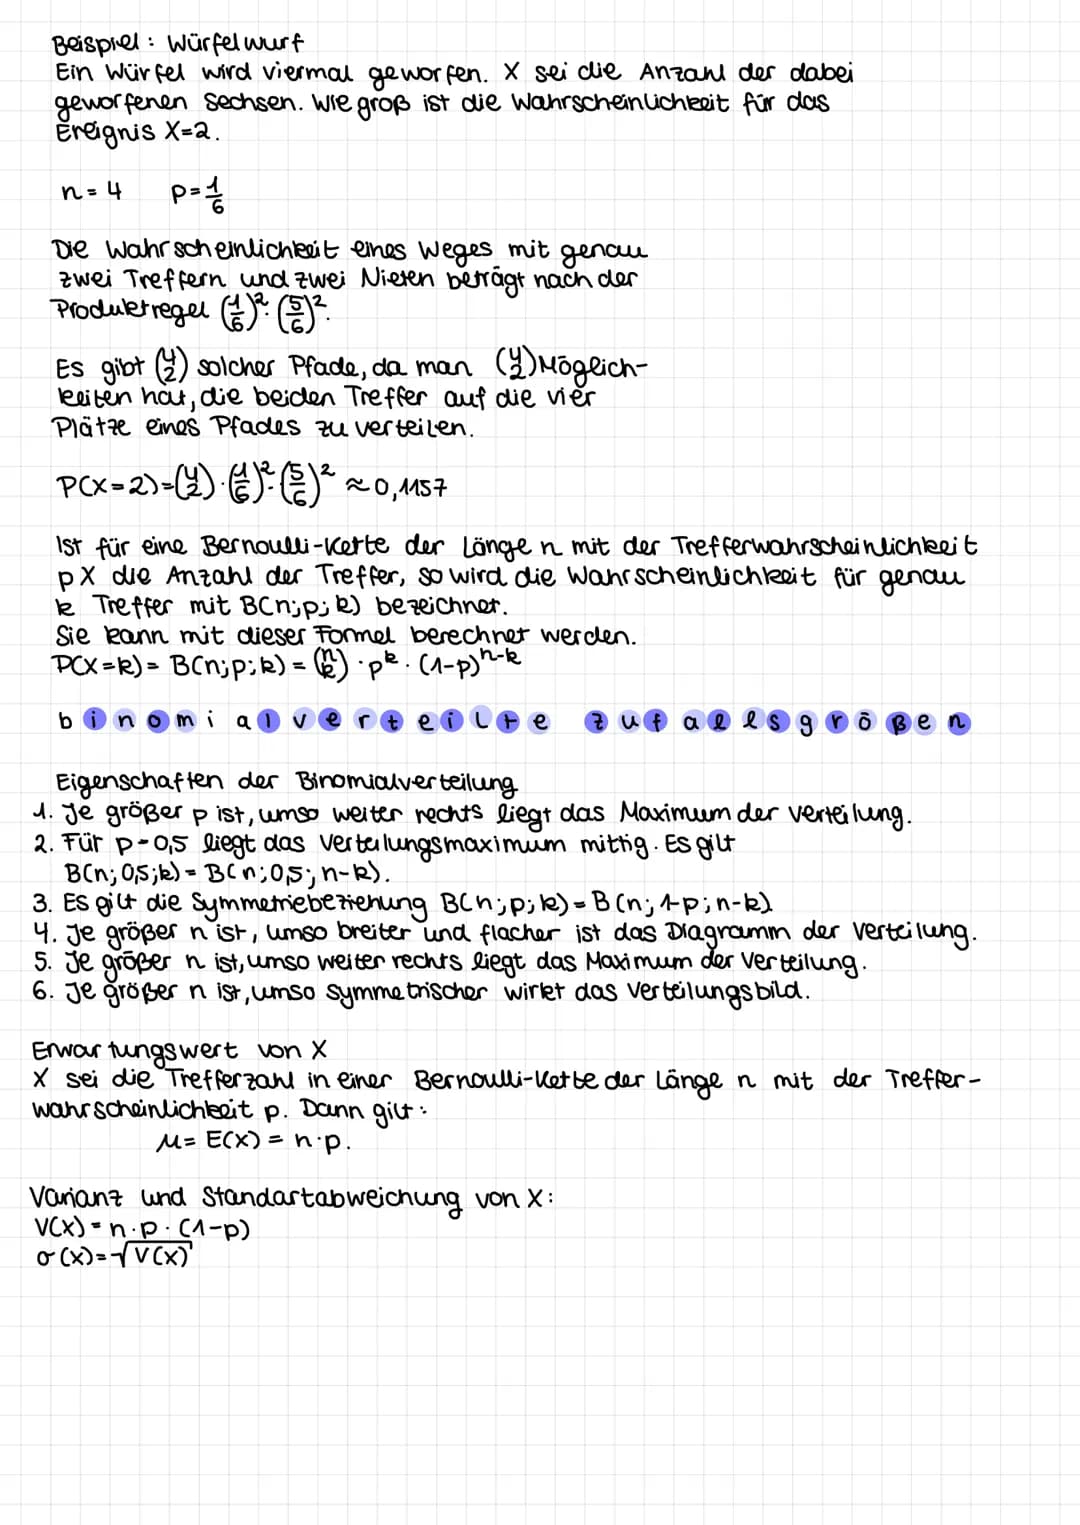 Beispiel: Würfelwurf
Ein Würfel wird viermal geworfen. X sei die Anzahl der dabei
geworfenen Sechsen. Wie groß ist die Wahrscheinlichkeit für das
Ereignis X=2.
n=4 p=1/6
Die Wahrscheinlichkeit eines Weges mit genau
zwei Treffern und zwei Nieten beträgt nach der
Produktregel (1/6)²·(5/6)².
Es gibt (4 2) solcher Pfade, da man (4 2) Möglich-
keiten hat, die beiden Treffer auf die vier
Plätze eines Pfades zu verteilen.
P(X=2)=(4 2)·(1/6)²·(5/6)² ≈0,1157
Ist für eine Bernoulli-Kette der Länge n mit der Trefferwahrscheinlichkeit
p X die Anzahl der Treffer, so wird die Wahrscheinlichkeit für genau
k Treffer mit B(n;p;k) bezeichnet.
Sie kann mit dieser Formel berechnet werden.
P(X=k)= B(n;p;k) = (n k) · p^k · (1-p)^n-k
binomialverteilte zufallsgrößen
Eigenschaften der Binomialverteilung
1. Je größer p ist, umso weiter rechts liegt das Maximum der Verteilung.
2. Für p=0,5 liegt das Verteilungsmaximum mittig. Es gilt
B(n;0,5;k) = B(n;0,5; n-k).
3. Es gilt die Symmetriebeziehung B(n;p;k)=B(n;1-p;n-k)
4. Je größer n ist, umso breiter und flacher ist das Diagramm der Verteilung.
5. Je größer n ist, umso weiter rechts liegt das Maximum der Verteilung.
6. Je größer n ist, umso symmetrischer wirkt das Verteilungsbild.
Erwartungswert von X
X sei die Trefferzahl in einer Bernoulli-Kette der Länge n mit der Treffer-
wahrscheinlichkeit p. Dann gilt:
μ= E(X) = n·p.
Varianz und Standartabweichung von X:
V(X) = n·p·(1-p)
σ(x)=√V(X)